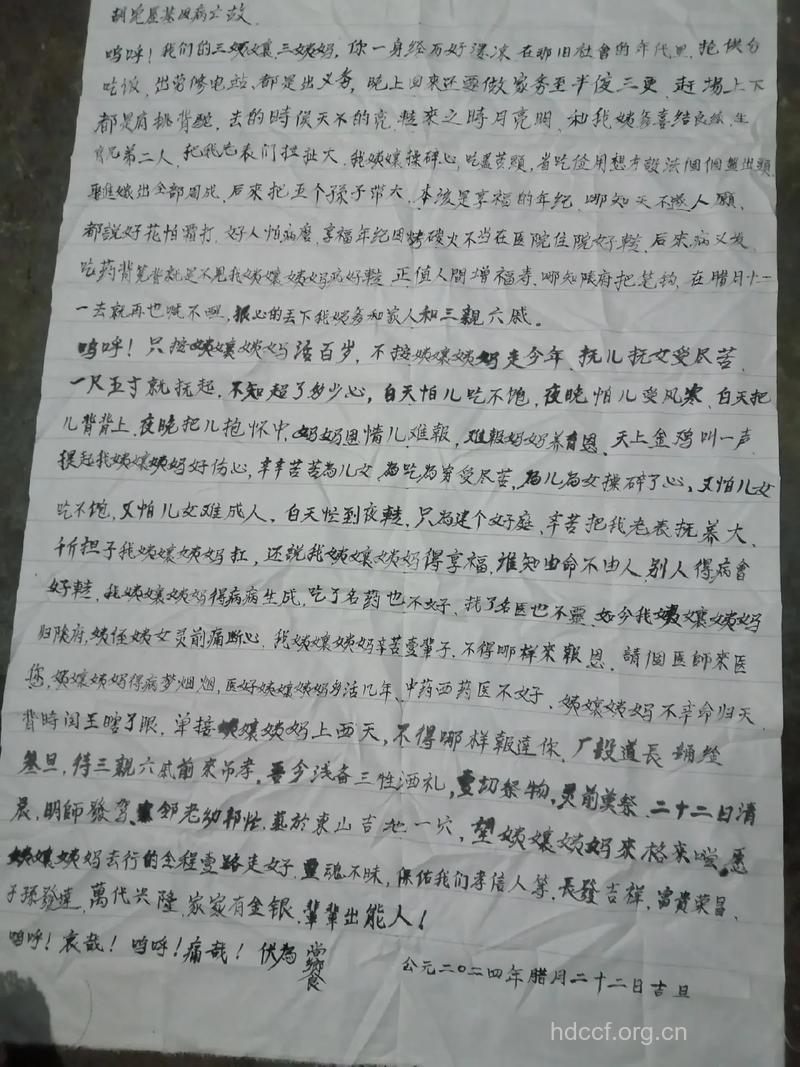 呜呼！我们的三姨孃、三姨妈，你一身经历好凄凉 在那旧社會的年代里 抢伙食
吃饭，出劳修电站，都是出义务，晚上回來还要做家务至半夜三更 赶場上下
都是肩挑背驼，去的時侯天不的亮 轉來之時月亮明 和我姨爹喜结良缘 生
育兄弟二人 把我老表们捏扯大 我姨孃操碎心 吃尽苦頭 省吃俭用想方設法個個盤出頭
全部周成 后來把五个孫子带大 本该是享福的年纪 哪知天不遂人願
都説好花怕霜打 好人怕病磨 享福年纪因 火不当在医院住院好轉 后來病又发
吃药 就是不見我姨孃姨妈病好轉 正值人間增福寿 哪知陰府把笔钩 在腊月十二
一去就再也 不 狠心的丢下我姨爹和家人和三親六戚。
呜呼！只接姨孃姨妈活百岁，不接姨孃姨妈走今年 抚儿抚女受尽苦
一尺五寸就抚起，不知超了多少心，白天怕儿吃不饱，夜晚怕儿受风寒 白天把
儿背背上 夜晚把儿抱怀中 妈妈恩情儿难報，难報妈妈养育恩 天上金鸡叫一声
提起我姨孃姨妈好伤心，辛辛苦苦為儿女 為吃為穿受尽苦 為儿為女操碎了心，又怕儿女
吃不饱，又怕儿女难成人，白天忙到夜轉 只為建个好庭 辛苦把我老表抚养大
千斤担子我姨孃姨妈扛，还説我姨孃姨妈得享福 谁知由命不由人 别人得病會
好轉 我姨孃姨妈得病病生成，吃了名药也不好 找了名医也不靈 如今我姨孃姨妈
归陰府，姨侄姨女灵前痛断心 我姨孃姨妈辛苦壹輩子 不得哪样來報恩 請個医師來医
您，姨孃姨妈得病梦烟烟，医好姨孃姨妈多活几年 中药西药医不好 姨孃姨妈不辛命归天
背時闰王瞎了眼 单接姨孃姨妈上西天，不得哪样報達你 厂設道長 誦经
叁旦，待三親六戚前來吊孝 吾今浅备三牲洒礼 壹切祭物，灵前奠祭 二十二日清
晨，明師發驾 邻老幼邦忙 墓於東山吉地一穴 望姨孃姨妈來格來嚐。愿
姨孃姨妈去行的全程壹路走好 靈魂不昧，保佑我们孝信人等，長發吉祥，富貴荣昌
子孫發達，萬代兴隆 家家有金银 輩輩出能人！
呜呼！哀哉！呜呼！痛哉！伏為尚饗
公元二〇二四年腊月二十二日吉旦
hdccf.org.cn